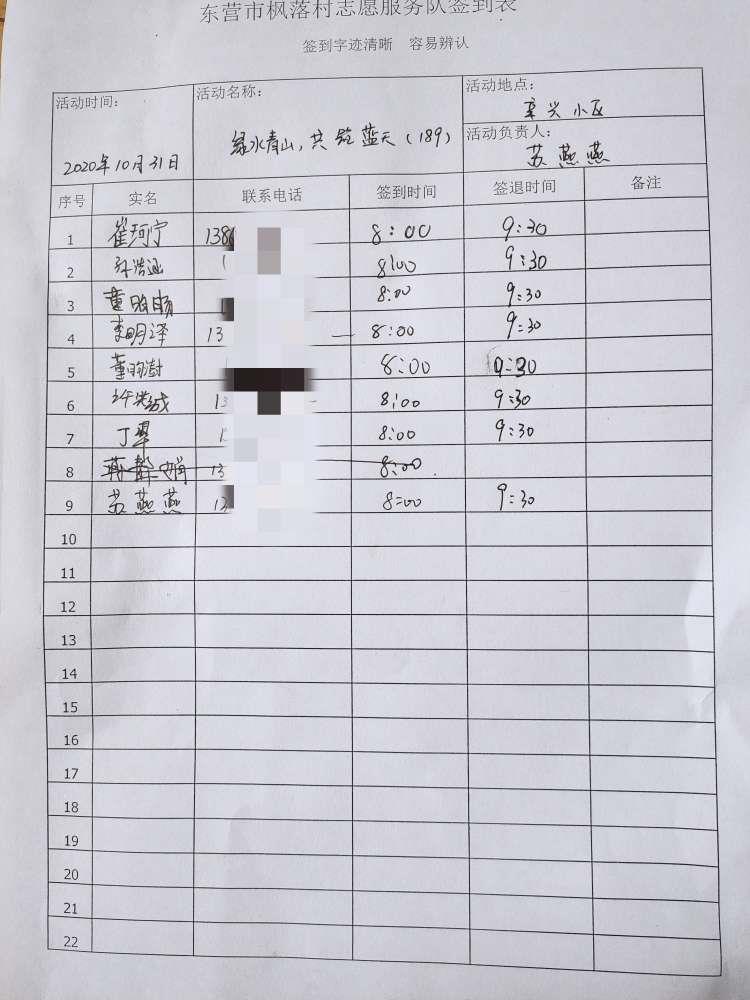 东营市枫落村志愿服务队签到表
签到字迹清晰 容易辨认
活动时间： 活动名称： 活动地点：
辛兴小区
2020年10月31日 绿水青山，共 蓝天（189） 活动负责人：
苏燕燕
序号 实名 联系电话 签到时间 签退时间 备注
1 崔珂宁 138 8:00 9:30
2 8:00 9:30
3 董 8:00 9:30
4 李明泽 13 8:00 9:30
5 董 澍 8:00 9:30
6 许 诚 13 8:00 9:30
7 丁翠 1 8:00 9:30
8 蒋 娟 13 8:00
9 苏燕燕 13 8:00 9:30
10
11
12
13
14
15
16
17
18
19
20
21
22